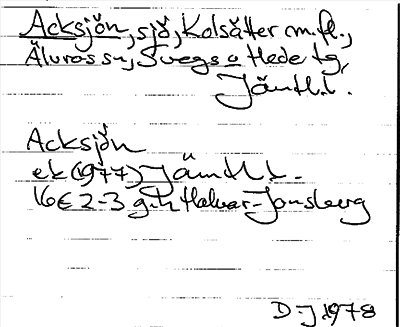 Acksjön, sjö, Kolsätter m.fl.,
Älvros sn, Svegs o Hede tg,
Jämtl.l.
Acksjön
ek (1977) Jämtl.l.
16E 2-3 g-h Halvar-Jonsberg
D-J 1978